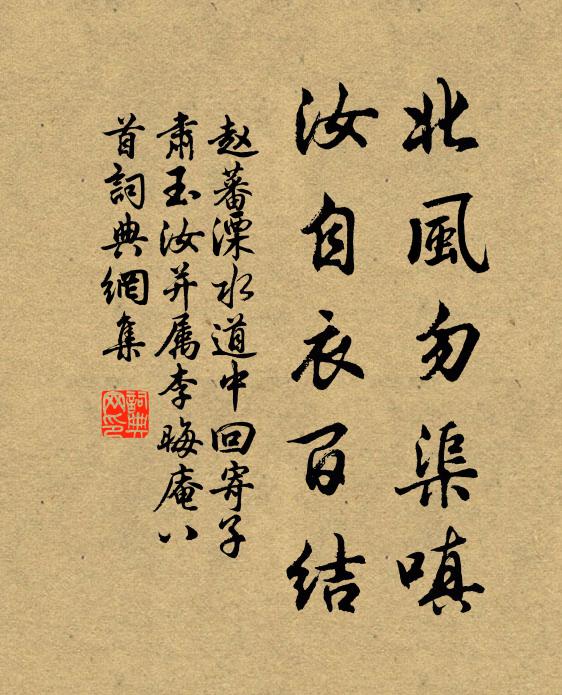 北風勿渠嗔
汝自衣百结
赵蕃溧水道中回寄子
肅玉汝并属李晦庵八
首詞典網集
詞典
网印